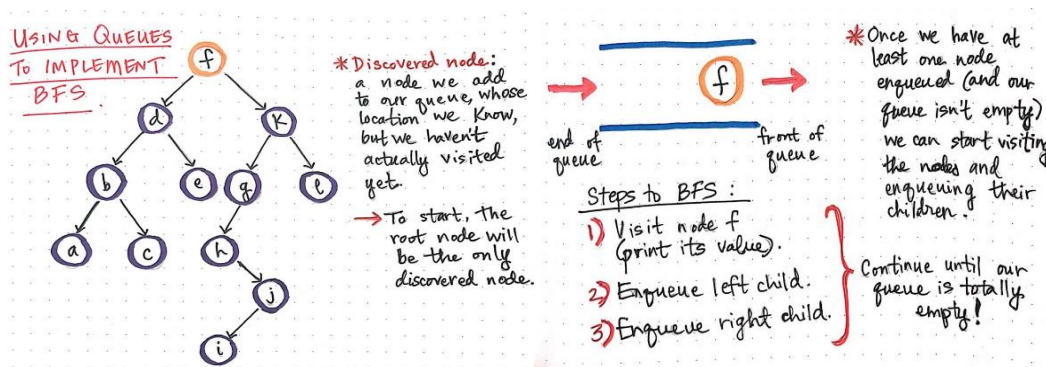 USING QUEUES
TO IMPLEMENT
BFS.
f
d
k
b
e
g
l
a
c
h
j
i
*Discovered node:
a node we add
to our queue, whose
location we know,
but we haven't
actually visited
yet.
→ To start, the
root node will
be the only
discovered node.
f
end of
queue
front of
queue
Steps to BFS:
1) Visit node f
(print its value).
2) Enqueue left child.
3) Enqueue right child.
*Once we have at
least one node
enqueued (and our
queue isn't empty)
we can start visiting
the nodes and
enqueuing their
children.
Continue until our
queue is totally
empty!